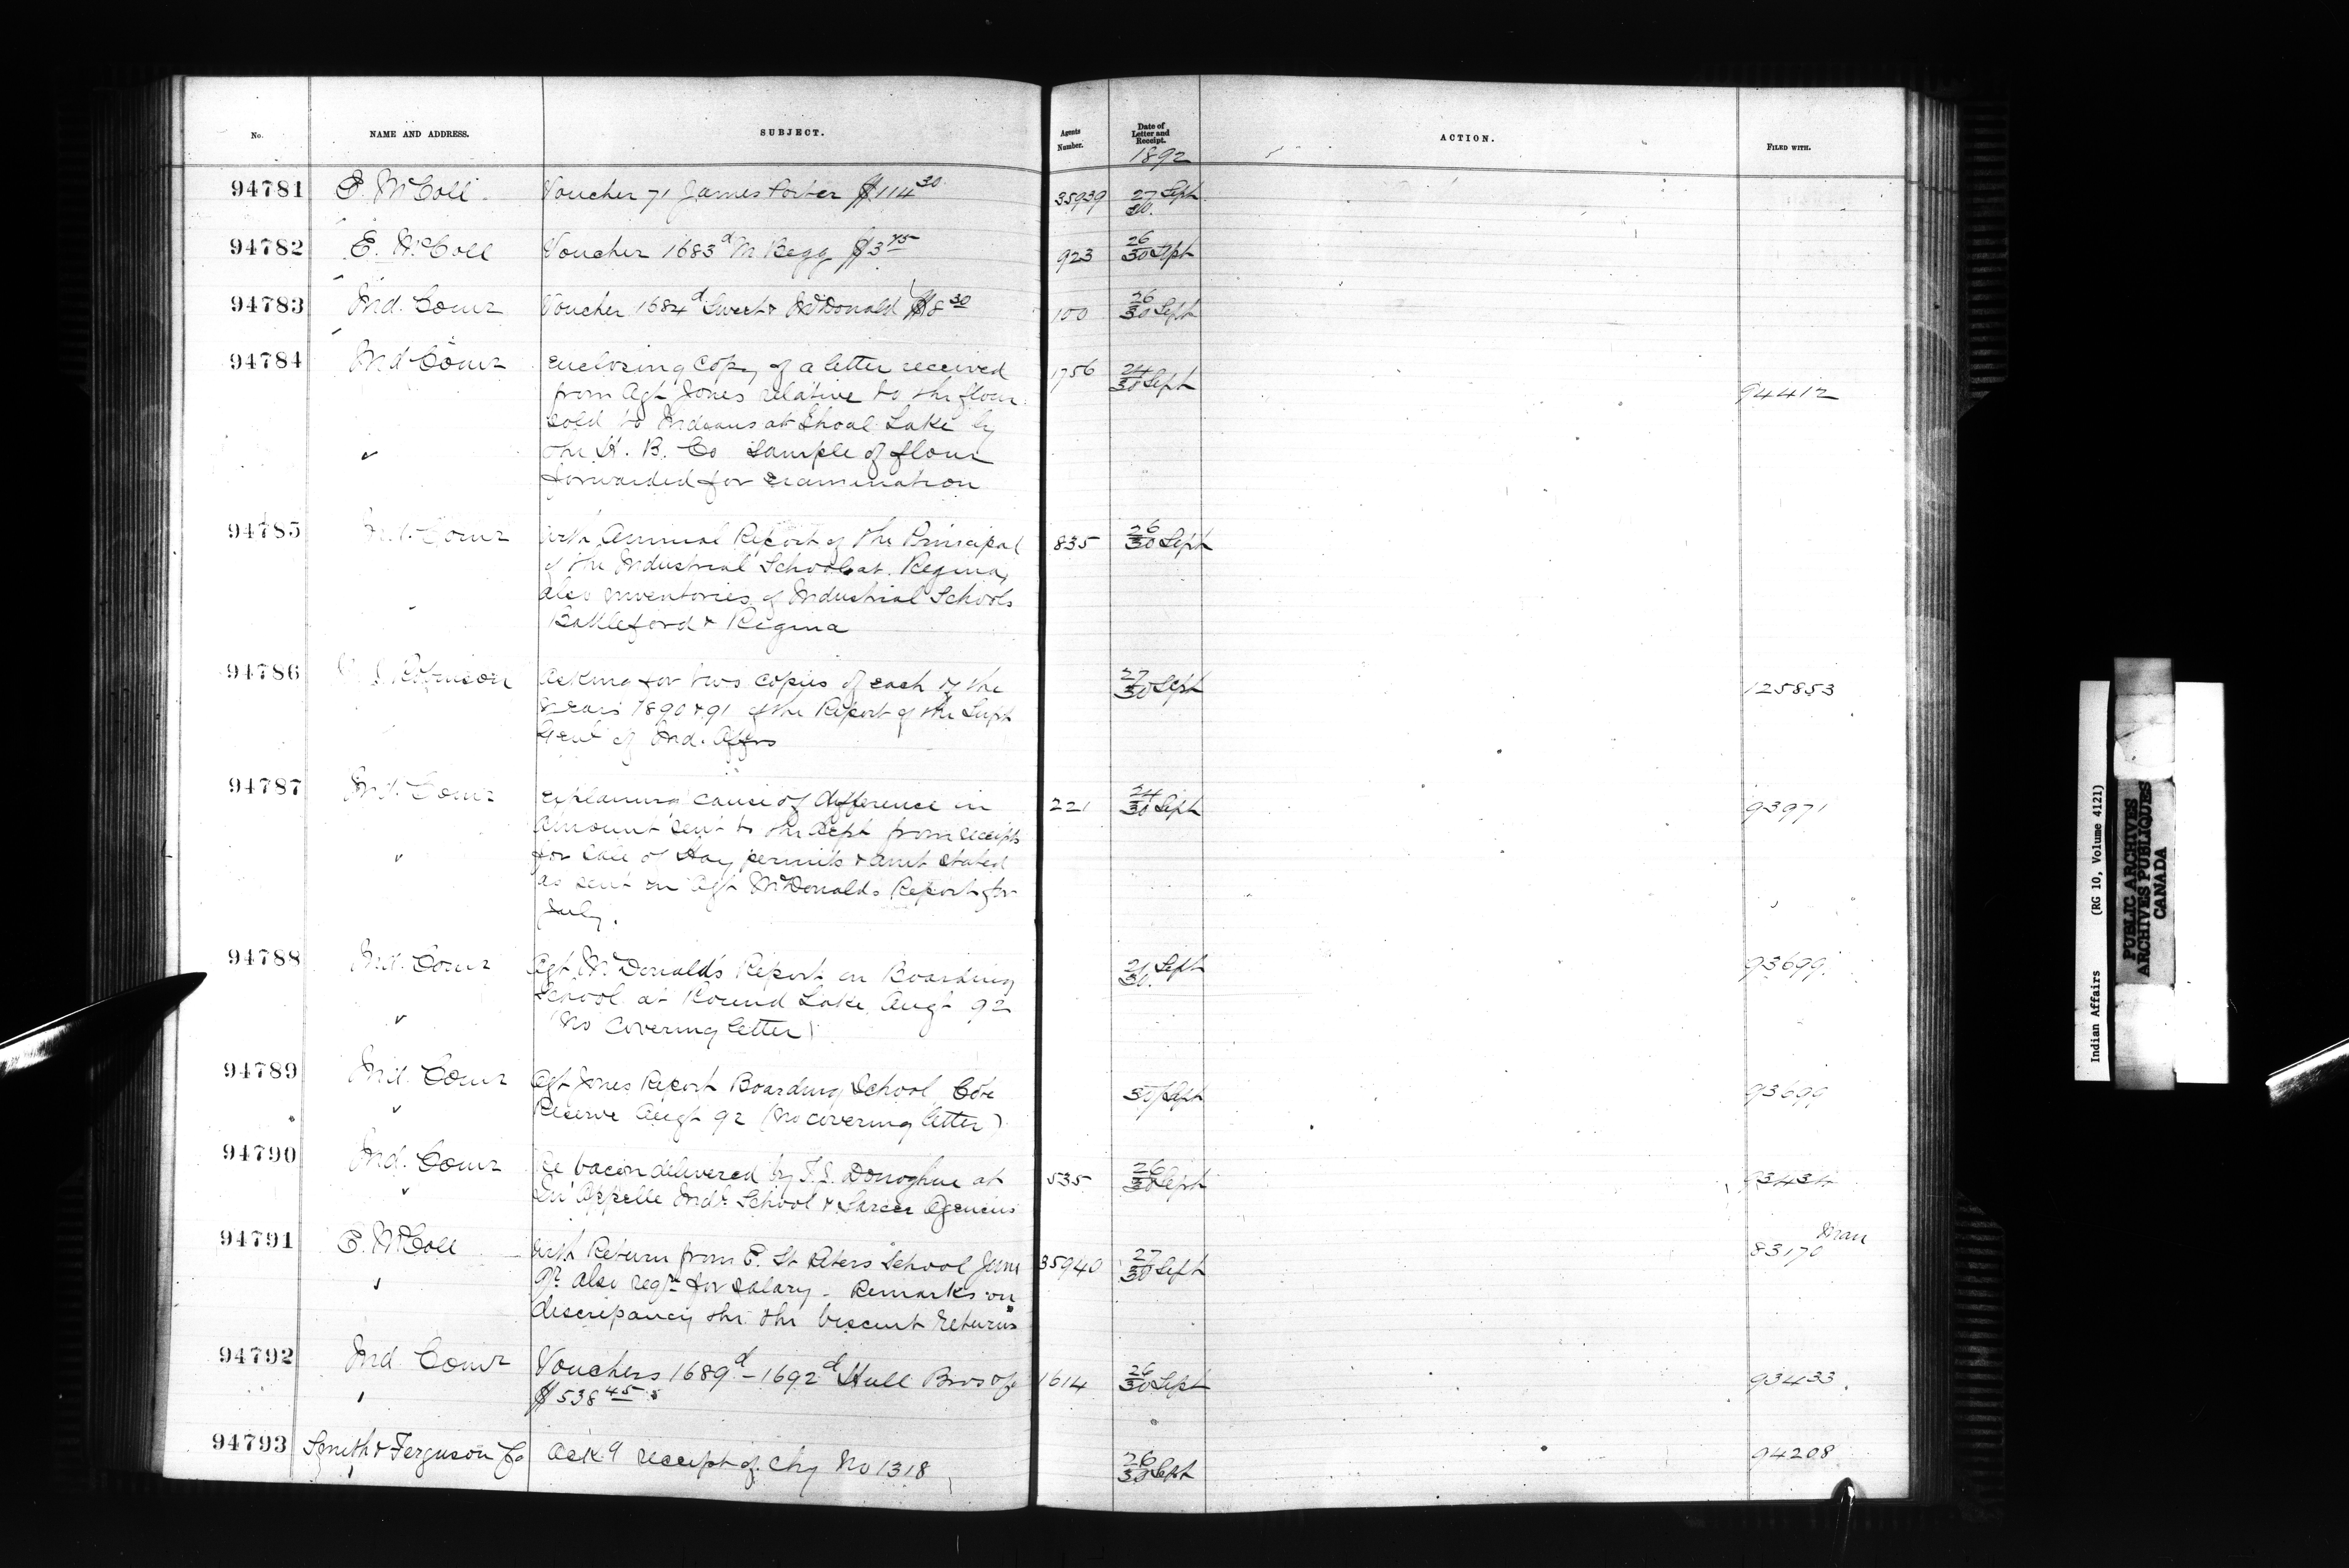 No. NAME AND ADDRESS. SUBJECT. Agents Number. Date of Letter and Receipt. ACTION. FILED WITH.
1892
94781 E. McColl Voucher 71 James Porter $114 30 35939 27 Sept 30
94782 E. McColl Voucher 1683d M Begg $3 75 923 26/30 Sept
94783 Ind. Comr Voucher 1684d Sweet & McDonald $8 30 100 26/30 Sept
94784 Ind Comr enclosing copy of a letter received 1756 24/30 Sept
from Agt Jones relative to the flour 94412
sold to Indians at Shoal Lake by
the H. B. Co Sample of flour
forwarded for examination
94785 Ind. Comr with Annual Report of the Principal 835 26/30 Sept
of the Industrial School at Regina,
also inventories of Industrial Schools
Battleford & Regina
94786 Robinson Asking for two copies of each of the 27/30 Sept 125853
Years 1890 & 91 of the Report of the Supt
Genl of Ind. Affrs
94787 Ind. Comr explaining cause of difference in 221 24/30 Sept 93971
amount sent to the Dept from receipts
for sale of Hay permits & amt stated
as sent in Agt McDonald's Report for
July.
94788 Ind. Comr Agt McDonald's Report on Boarding 21 Sept 30 93699
School at Round Lake Augt 92
(No Covering letter)
94789 Ind. Comr Agt Jones Report Boarding School Cote 30 Sept 93699
Reserve Augt 92 (No covering letter)
94790 Ind. Comr Re bacon delivered by T. S. Donoghue at 535 26/30 Sept 93434
Qu'Appelle Indl School & Sarcee Agencies
94791 E. McColl with Return from E. St Peters School June 35940 27/30 Sept 83170 Man
92 also reqn for salary - Remarks on
discrepancy the the biscuit returns
94792 Ind Comr Vouchers 1689d - 1692d Hull Bros of 1614 26/30 Sept 93433
$538 45
94793 Smith & Ferguson Co Ack.g receipt of chq No 1318 26/30 Sept 94208
Indian Affairs (RG 10, Volume 4121)
PUBLIC ARCHIVES
ARCHIVES PUBLIQUES
CANADA